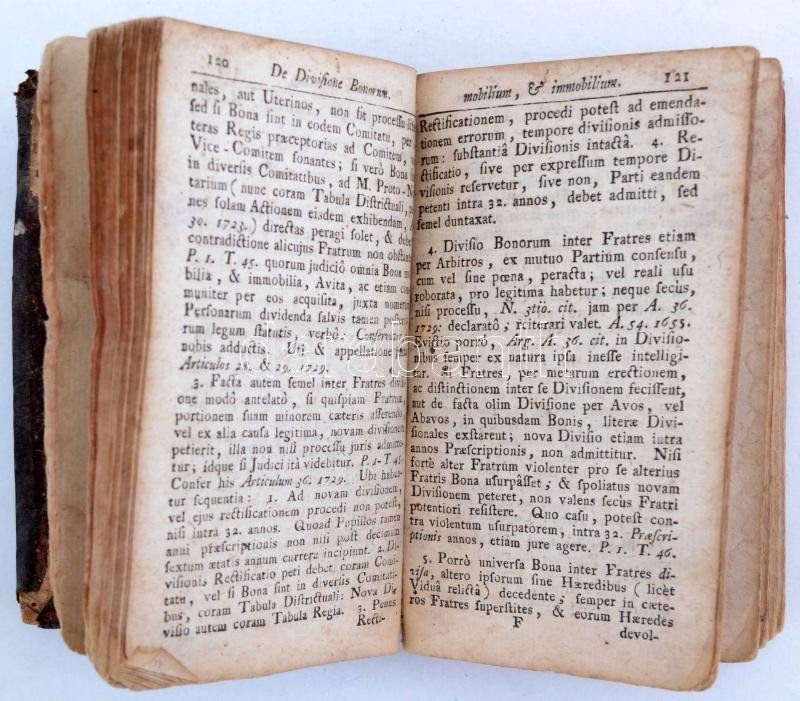 120 De Divisione Bonorum.
nales, aut Uterinos, non sit processu
sed si Bona sint in eodem Comitatu, per
teras Regis præceptorias ad Comitem,
Vice-Comitem sonantes; si verò Bona
in diversis Comitatibus, ad M. Proto-No
tarium (nunc coram Tabula Districtuali,
nes solam Actionem eisdem exhibendam, A.
30. 1723.) directas peragi solet, & debet
contradictione alicujus Fratrum non obstante
P. 1. T. 45. quorum judiciô omnia Bona mo
bilia, & immobilia, Avita, ac etiam com
muniter per eos acquisita, juxta numerum
Personarum dividenda salvis tamen
rum legum statutis, verbô: Conservatis
nobis adductis. Uti & appellatione
Articulos 28. & 29. 1729.
3. Facta autem semel inter Fratres divisi-
one modô antelatô, si quispiam Fratrum,
portionem suam minorem cæteris asserendo,
vel ex alia causa legitima, novam divisionem
petierit, illa non nisi processu juris admitti-
tur; idque si Judici ità videbitur. P. 1. T. 45.
Confer his Articulum 36. 1729. Ubi habe-
tur sequentia: 1. Ad novam divisionem,
vel ejus rectificationem procedi non potest,
nisi intra 32. annos. Quoad Pupillos tamen
anni præscriptionis non nisi post decimum
sextum ætatis annum currere incipiunt. 2. Di-
visionis Rectificatio peti debet coram Comi-
tatu, vel si Bona sint in diversis Comitati-
bus, coram Tabula Districtuali: Nova Di-
visio autem coram Tabula Regia. 3. Penes
Recti-
mobilium, & immobilium. 121
Rectificationem, procedi potest ad emenda-
tionem errorum, tempore divisionis admisso-
rum: substantiâ Divisionis intactâ. 4. Re-
ctificatio, sive per expressum tempore Di-
visionis reservetur, sive non, Parti eandem
petenti intra 32. annos, debet admitti, sed
semel duntaxat.
4. Divisio Bonorum inter Fratres etiam
per Arbitros, ex mutuo Partium consensu,
cum vel sine pœna, peracta; vel reali usu
roborata, pro legitima habetur; neque secùs,
nisi processu, N. 3tio. cit. jam per A. 36.
1729. declaratô; refricari valet. A. 54. 1655.
Evictio porrò, Arg. A. 36. cit. in Divisio-
nibus semper ex natura ipsa inesse intelligi-
tur. Si Fratres, per metarum erectionem,
ac distinctionem inter se Divisionem fecissent,
aut de facta olim Divisione per Avos, vel
Abavos, in quibusdam Bonis, literæ Divi-
sionales exstarent; nova Divisio etiam intra
annos Præscriptionis, non admittitur. Nisi
fortè alter Fratrum violenter pro se alterius
Fratris Bona usurpâsset; & spoliatus novam
Divisionem peteret, non valens secùs Fratri
potentiori resistere. Quo casu, potest con-
tra violentum usurpatorem, intra 32. Præscri-
ptionis annos, etiam jure agere. P. 1. T. 46.
5. Porrò universa Bona inter Fratres di-
visa, altero ipsorum sine Hæredibus (licèt
Viduâ relictâ) decedente; semper in cæte-
ros Fratres superstites, & eorum Hæredes
F devol-